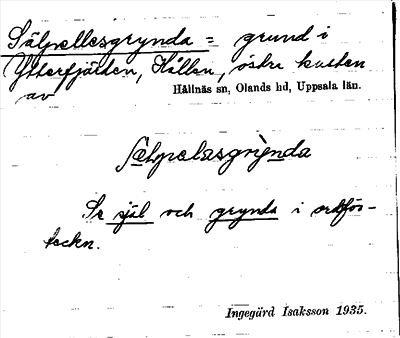 Sälpellesgrynda = grund i
Ytterfjärden, Hållen, östra kusten
av
Hållnäs sn, Olands hd, Uppsala län.
sälpelasgrynda
Se själ och grynda i ordför-
teckn.
Ingegärd Isaksson 1935.